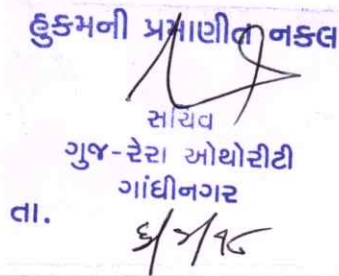 હુકમની પ્રમાણીત નકલ
સચિવ
ગુજ-રેરા ઓથોરીટી
ગાંધીનગર
તા.